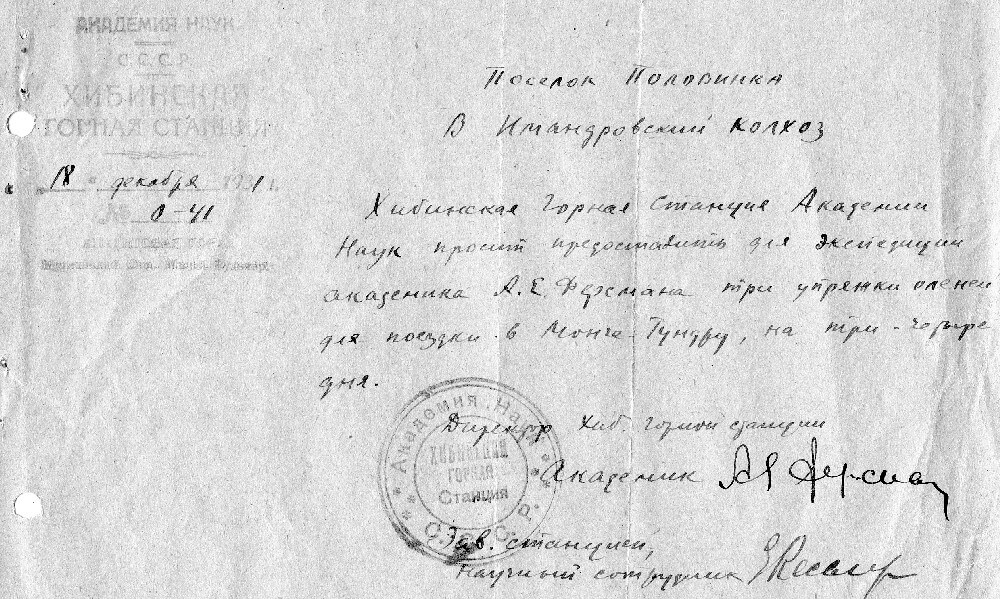 АКАДЕМИЯ НАУК
С.С.С.Р.
ХИБИНСКАЯ
ГОРНАЯ СТАНЦИЯ
18 " декабря 1931 г.
№ 0-41
Поселок Половинка
В Имандровский колхоз
Хибинская Горная Станция Академии
Наук просит предоставить для экспедиции
академика А.Е. Ферсмана три упряжки оленей
для поездки в Монче-Тундру, на три-четыре
дня.
Директор Хиб. горной станции
Академик А Ферсман
Зав. станцией,
Научный сотрудник
Академия Наук
С.С.С.Р.
ХИБИНСКАЯ
ГОРНАЯ
Станция